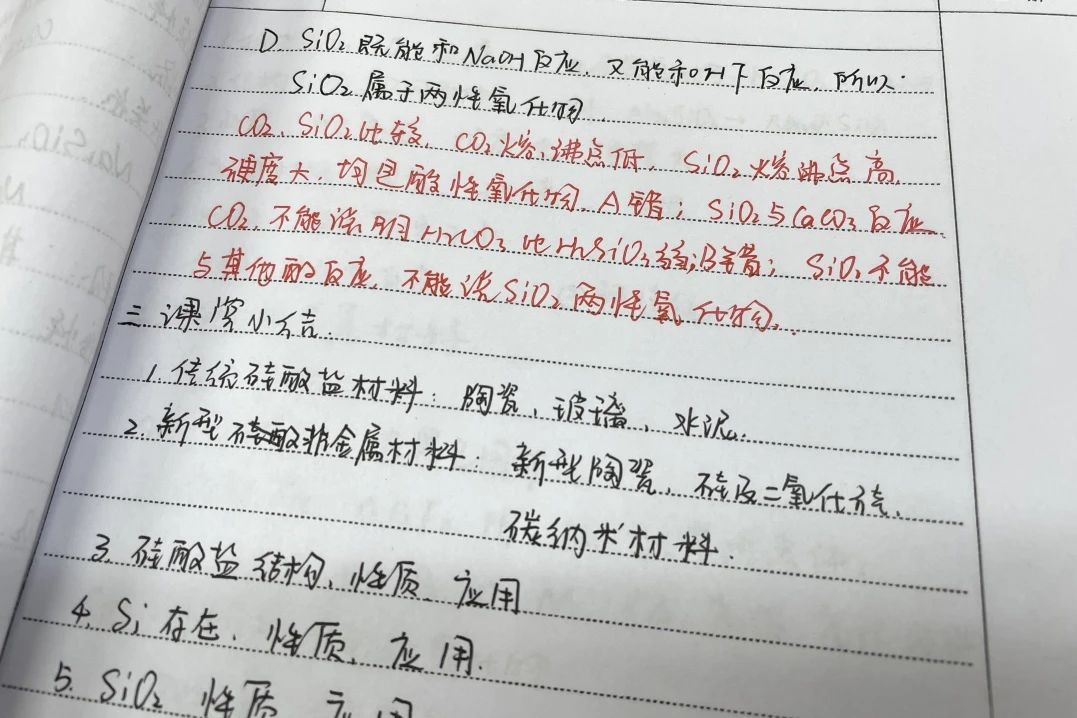 D. SiO₂既能和NaOH反应，又能和HF反应，所以
SiO₂属于两性氧化物.
CO₂、SiO₂比较，CO₂熔、沸点低，SiO₂熔沸点高，
硬度大，均是酸性氧化物，A错；SiO₂与CaCO₃反应
CO₂，不能说明H₂CO₃比H₂SiO₃ B错；SiO₂不能
与其他酸反应，不能说SiO₂两性氧化物.
三.课堂小结.
1.传统硅酸盐材料：陶瓷、玻璃、水泥.
2.新型 非金属材料：新型陶瓷、硅及二氧化硅、
碳纳米材料.
3.硅酸盐结构、性质、应用
4.Si存在、性质、应用.
5.SiO₂性质、应用